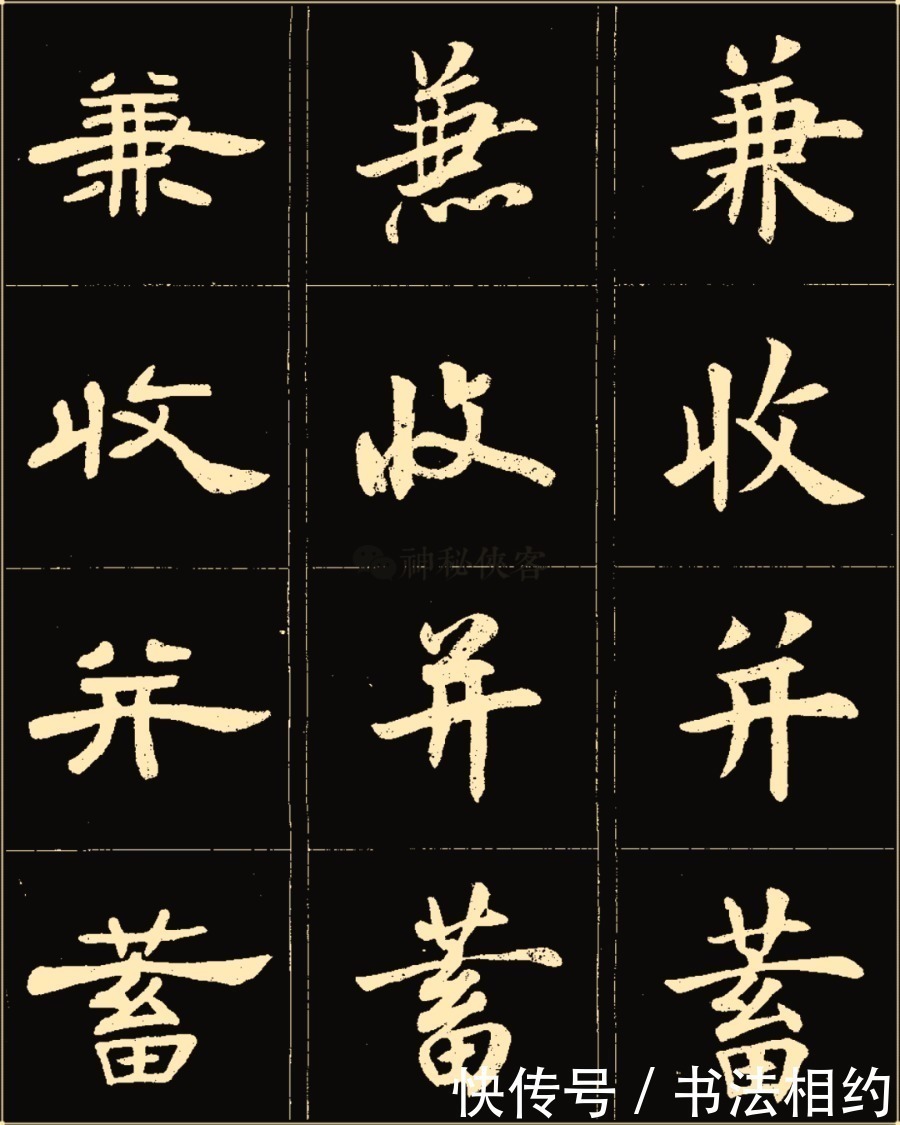 兼 兼 兼
收 收 收
神秘侠客
并 并 并
蓄 蓄 蓄
快传号 / 书法相约